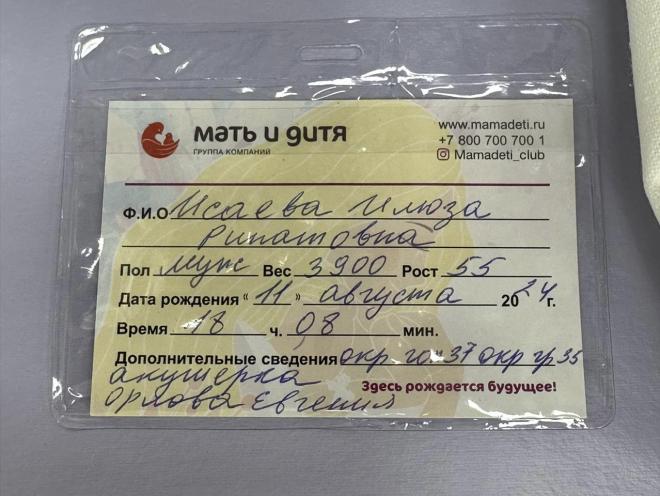 мать и дитя
ГРУППА КОМПАНИЙ
www.mamadeti.ru
+7 800 700 700 1
Mamadeti_club
Ф.И.О Исаева Илюза
Ринатовна
Пол муж Вес 3900 Рост 55
Дата рождения “ 11 ” августа 2024 г.
Время 18 ч. 08 мин.
Дополнительные сведения окр гол 37 окр гр 35
акушерка
Здесь рождается будущее!
Орлова Евгения